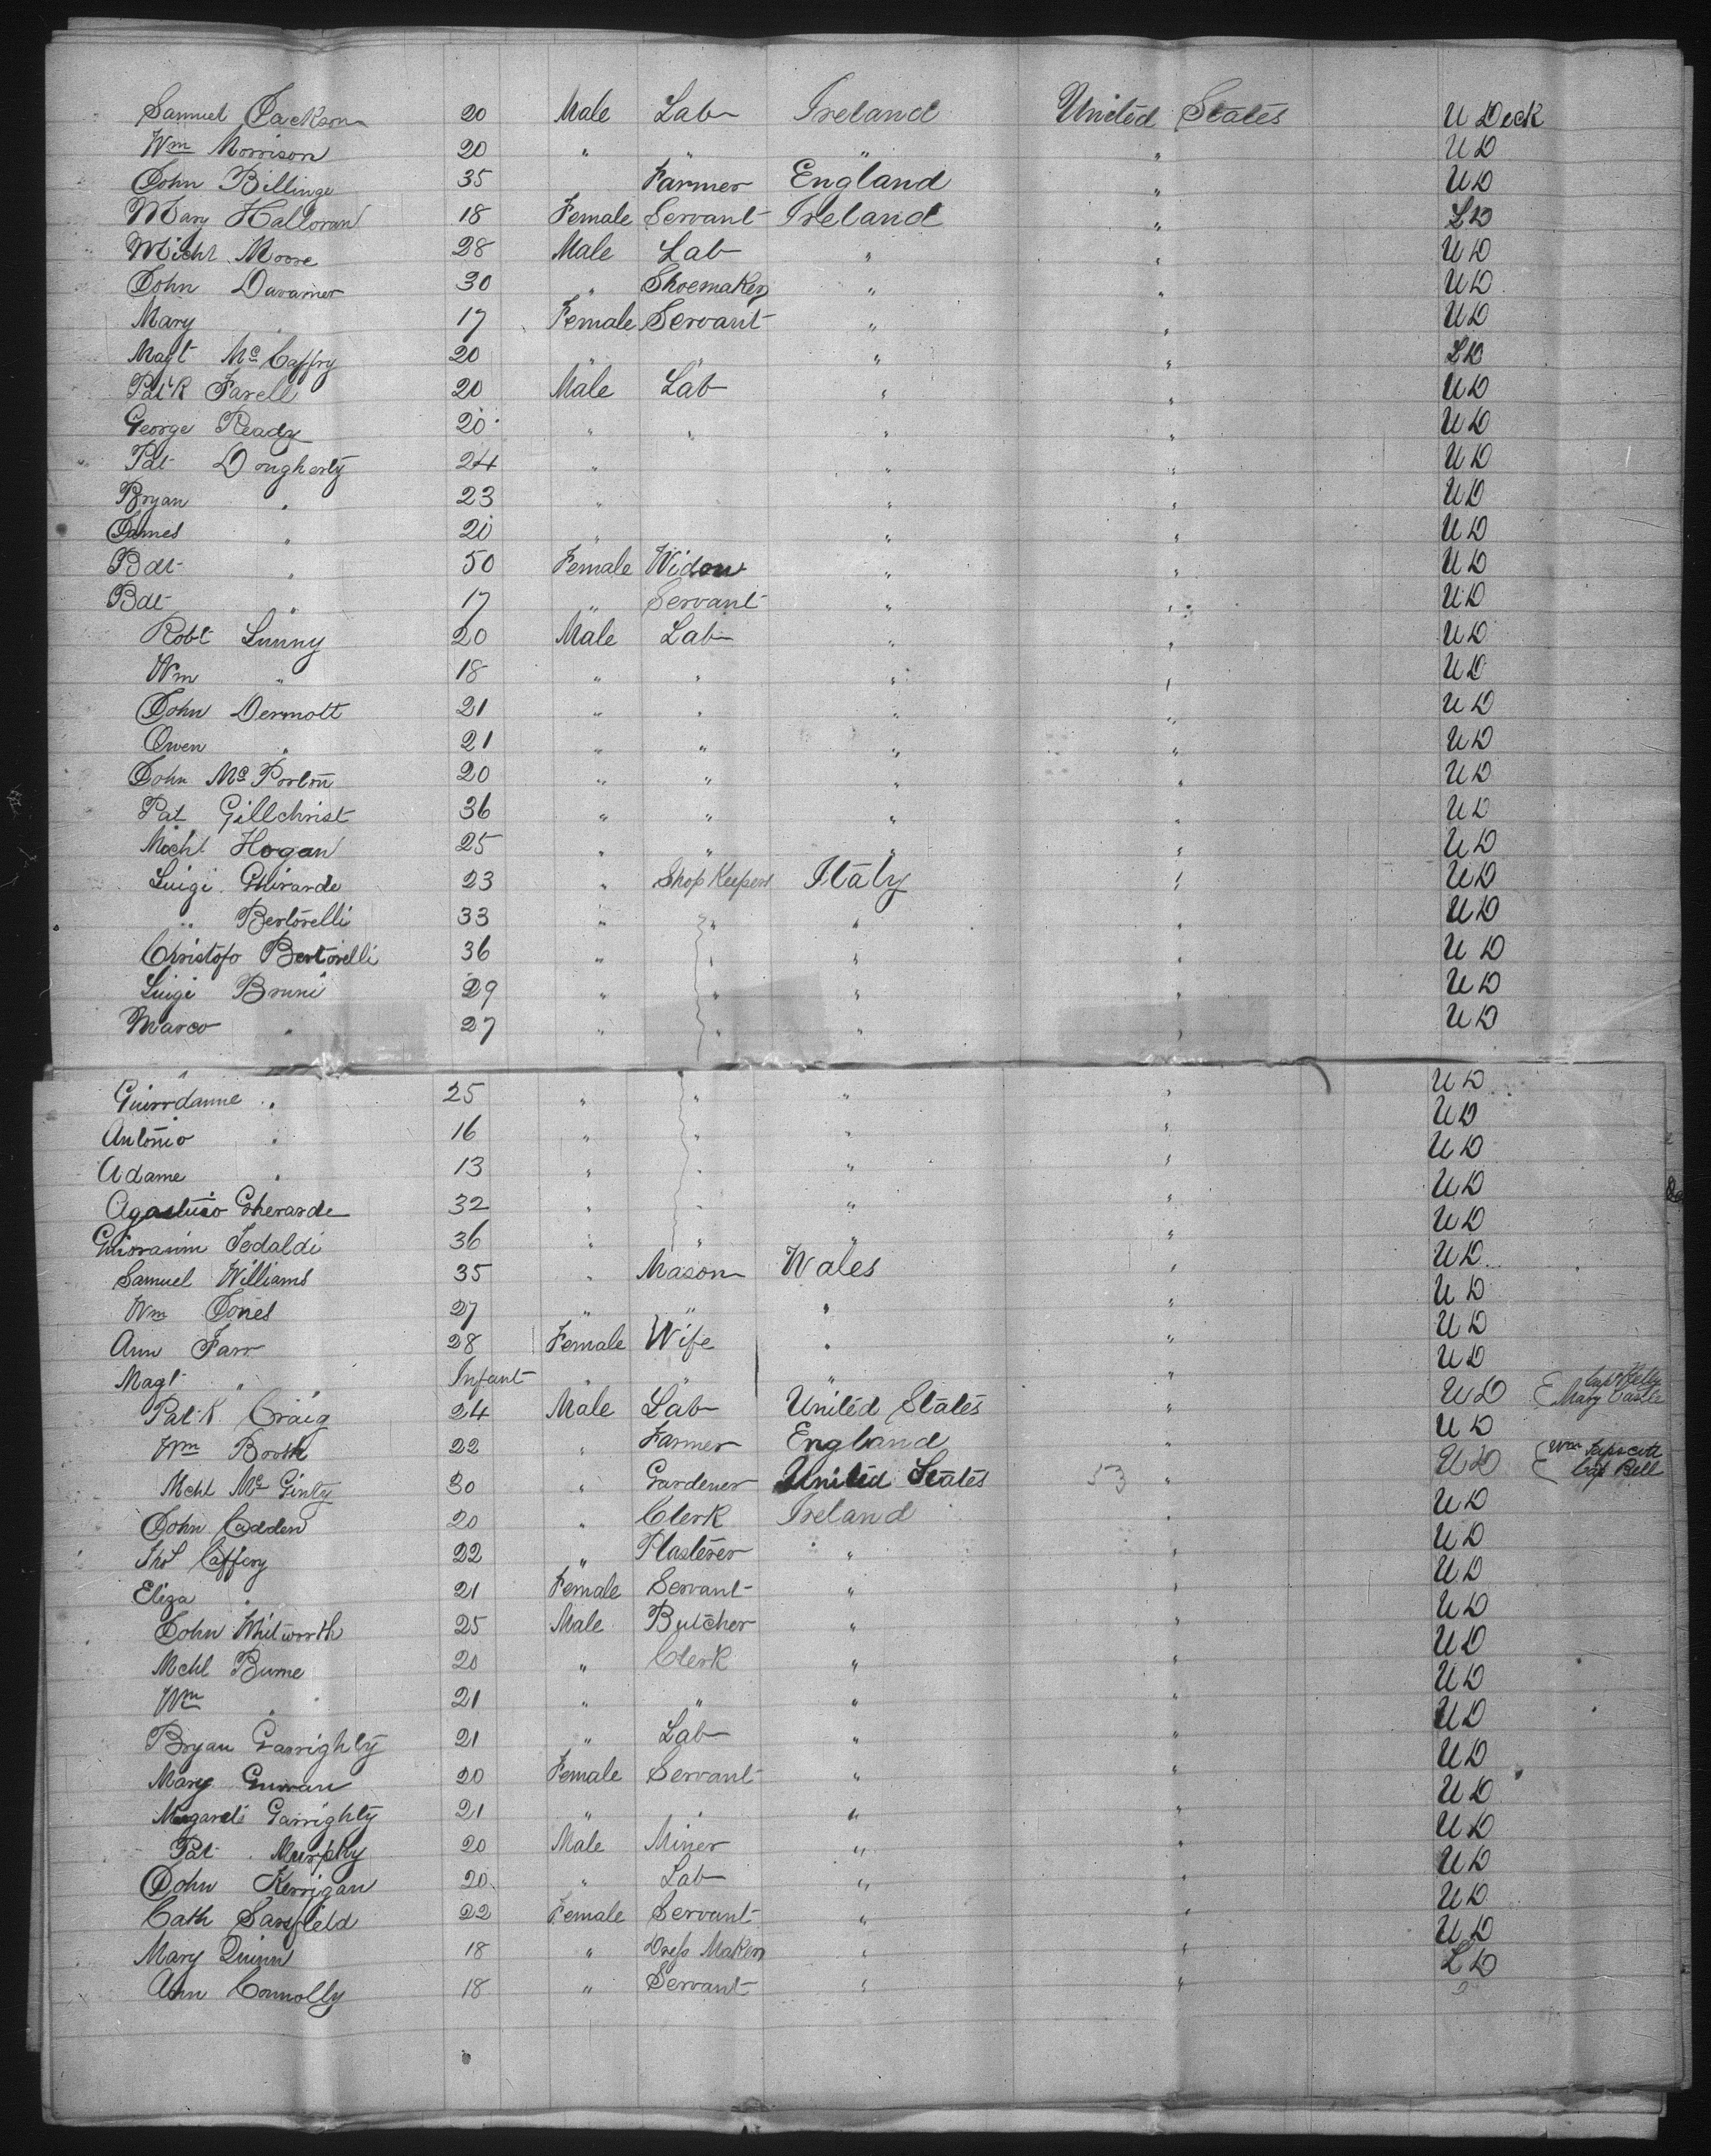 Samuel Jackson 20 Male Lab Ireland United States U Deck
Wm Morrison 20 " " " " U D
John Billinge 35 Farmer England " U D
Mary Halloran 18 Female Servant Ireland " L D
Michl Moore 28 Male Lab " " U D
John Davamer 30 " Shoemaker " " U D
Mary " 17 Female Servant " " U D
Magt McCaffry 20 " " " " L D
Patk Farell 20 Male Lab " " U D
George Ready 20 " " " " U D
Pat Dougherty 24 " " " U D
Bryan " 23 " " " U D
James " 20 " " " U D
Bdt " 50 Female Widow " " U D
Bdt " 17 " Servant " " U D
Robt Lunny 20 Male Lab " " U D
Wm " 18 " " " " U D
John Dermott 21 " " " " U D
Owen " 21 " " " " U D
John McPorton 20 " " " " U D
Pat Gillchrist 36 " " " " U D
Michl Hogan 25 " " " " U D
Luigi Ghirarde 23 " Shop Keepers Italy " U D
" Bertorelli 33 " " " " U D
Christofo Bertorelli 36 " " " " U D
Luigi Bruni 29 " " " " U D
Marco " 27 " " " " U D
Guirrdanne " 25 " " " " U D
Antonio " 16 " " " " U D
Adame " 13 " " " " U D
Agastino Gherarde 32 " " " " U D
Giovanim Tedaldi 36 " " " " U D
Samuel Williams 35 " Mason Wales " U D
Wm Jones 27 " " " " U D
Ann Farr 28 Female Wife " " U D
Magt " Infant " " " " U D
Patk Craig 24 Male Lab United States " U D Capt Kelly
Mary Carole
Wm Booth 22 " Farmer England " U D
Mchl McGinty 30 " Gardener United States 53 " U D Wm Tapscott
Cap Bell
John Cadden 20 " Clerk Ireland " U D
Thos Caffery 22 " Plasterer " " U D
Eliza " 21 Female Servant " " U D
John Whitworth 25 Male Butcher " " U D
Mchl Burne 20 " Clerk " " U D
Wm " 21 " " " " U D
Bryan Garrighty 21 " Lab " " U D
Mary Gurran 20 Female Servant " " U D
Magaret Garrighty 21 " " " " U D
Pat Murphy 20 Male Miner " " U D
John Kerrigan 20 " Lab " " U D
Cath Sarsfield 22 Female Servant " " U D
Mary Quinn 18 " Dress Maker " " U D
Ann Connolly 18 " Servant " " L D